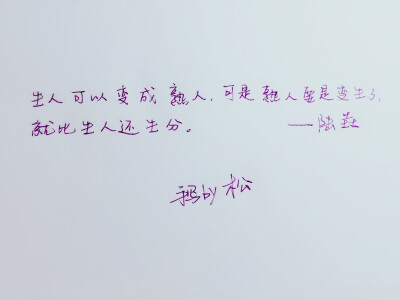 生人可以变成熟人,可是熟人要是变生了,
就比生人还生分。 ——陆
by 松